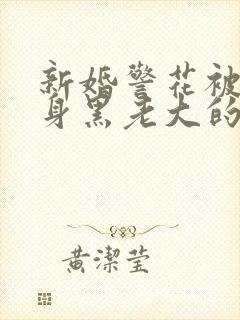 新婚警花被
身黑老大的
黄潔莹